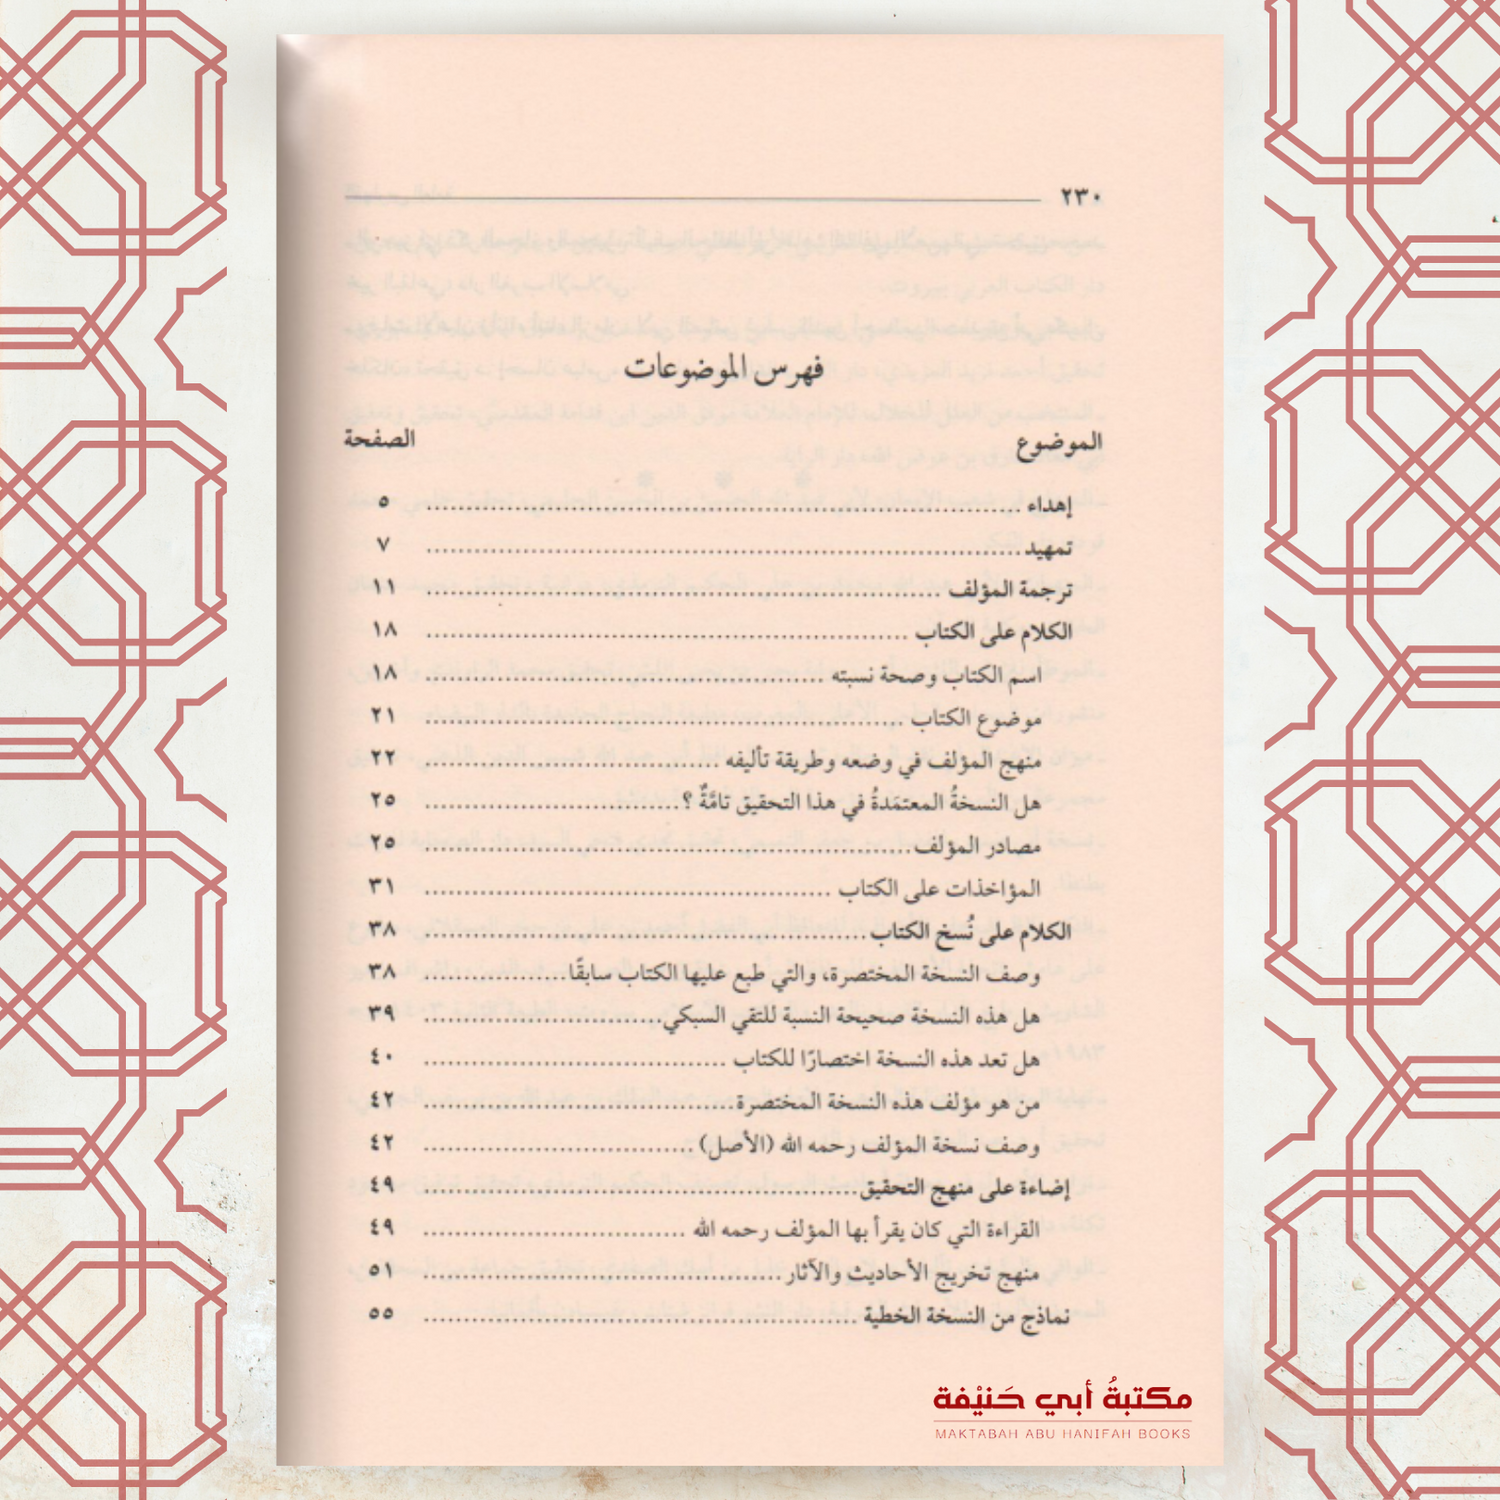 ٢٣٠
فهرس الموضوعات
الموضوع الصفحة
إهداء ..... ٥
تمهيد ..... ٧
ترجمة المؤلف ..... ١١
الكلام على الكتاب ..... ١٨
اسم الكتاب وصحة نسبته ..... ١٨
موضوع الكتاب ..... ٢١
منهج المؤلف في وضعه وطريقة تأليفه ..... ٢٢
هل النسخةُ المعتمَدةُ في هذا التحقيق تامَّةٌ ؟ ..... ٢٥
مصادر المؤلف ..... ٢٥
المؤاخذات على الكتاب ..... ٣١
الكلام على نُسخ الكتاب ..... ٣٨
وصف النسخة المختصرة، والتي طبع عليها الكتاب سابقًا ..... ٣٨
هل هذه النسخة صحيحة النسبة للتقي السبكي ..... ٣٩
هل تعد هذه النسخة اختصارًا للكتاب ..... ٤٠
من هو مؤلف هذه النسخة المختصرة ..... ٤٢
وصف نسخة المؤلف رحمه الله (الأصل) ..... ٤٢
إضاءة على منهج التحقيق ..... ٤٩
القراءة التي كان يقرأ بها المؤلف رحمه الله ..... ٤٩
منهج تخريج الأحاديث والآثار ..... ٥١
نماذج من النسخة الخطية ..... ٥٥
مكتبةُ أبي حَنيْفة
MAKTABAH ABU HANIFAH BOOKS